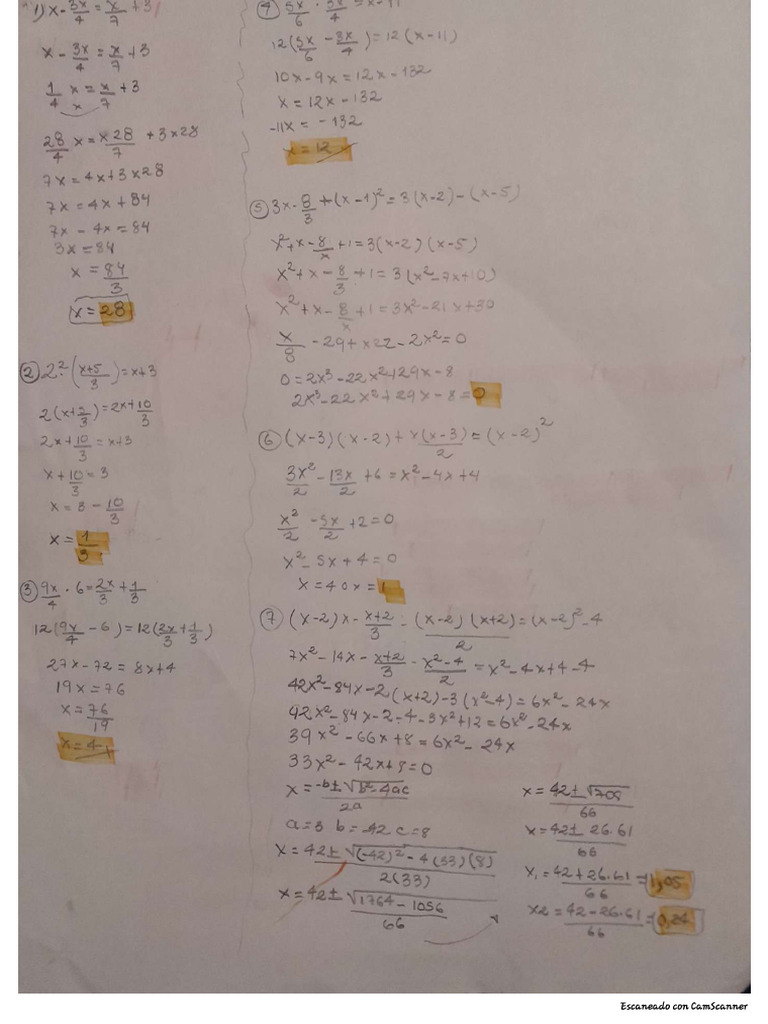 1) x - 3x/4 = x/7 + 3
x - 3x/4 = x/7 + 3
1/4 x = x/7 + 3
x
28/4 x = x28/7 + 3x28
7x = 4x + 3x28
7x = 4x + 84
7x - 4x = 84
3x = 84
x = 84/3
x = 28
② 2² (x+5/3) = x+3
2x + 10/3 = x+3
x + 10/3 = 3
x = 3 - 10/3
x = 1/3
③ 9x/4 · 6 = 2x/3 + 1/3
12(9x/4 - 6) = 12(2x/3 + 1/3)
27x - 72 = 8x + 4
19x = 76
x = 76/19
x = 4
④ 5x/6 · 3x/4 = x - 11
12(5x/6 - 3x/4) = 12(x - 11)
10x - 9x = 12x - 132
x = 12x - 132
-11x = -132
x = 12
⑤ 3x - 8/3 + (x-1)² = 3(x-2) - (x-5)
x² + x - 8/x + 1 = 3(x-2) (x-5)
x² + x - 8/3 + 1 = 3(x² - 7x + 10)
x² + x - 8/x + 1 = 3x² - 21x + 30
x/8 - 29 + x22 - 2x² = 0
0 = 2x³ - 22x² + 29x - 8
2x³ - 22x² + 29x - 8 = 0
⑥ (x-3) (x-2) + x(x-3)/2 = (x-2)²
3x²/2 - 13x/2 + 6 = x² - 4x + 4
x²/2 - 5x/2 + 2 = 0
x² - 5x + 4 = 0
x = 4 o x = 1
⑦ (x-2)x - x+2/3 - (x-2)(x+2)/2 = (x-2)² - 4
7x² - 14x - x+2/3 - x²-4/2 = x² - 4x + 4 - 4
42x² - 84x - 2(x+2) - 3(x²-4) = 6x² - 24x
42x² - 84x - 2 - 4 - 3x² + 12 = 6x² - 24x
39x² - 66x + 8 = 6x² - 24x
33x² - 42x + 8 = 0
x = -b ± √b² - 4ac/2a
a = 3 b = -42 c = 8
x = 42 ± √(-42)² - 4(33)(8)/2(33)
x = 42 ± √1764 - 1056/66
x = 42 ± √708/66
x = 42 ± 26.61/66
x₁ = 42 + 26.61/66 = 1,05
x2 = 42 - 26.61/66 = 0,24
Escaneado con CamScanner